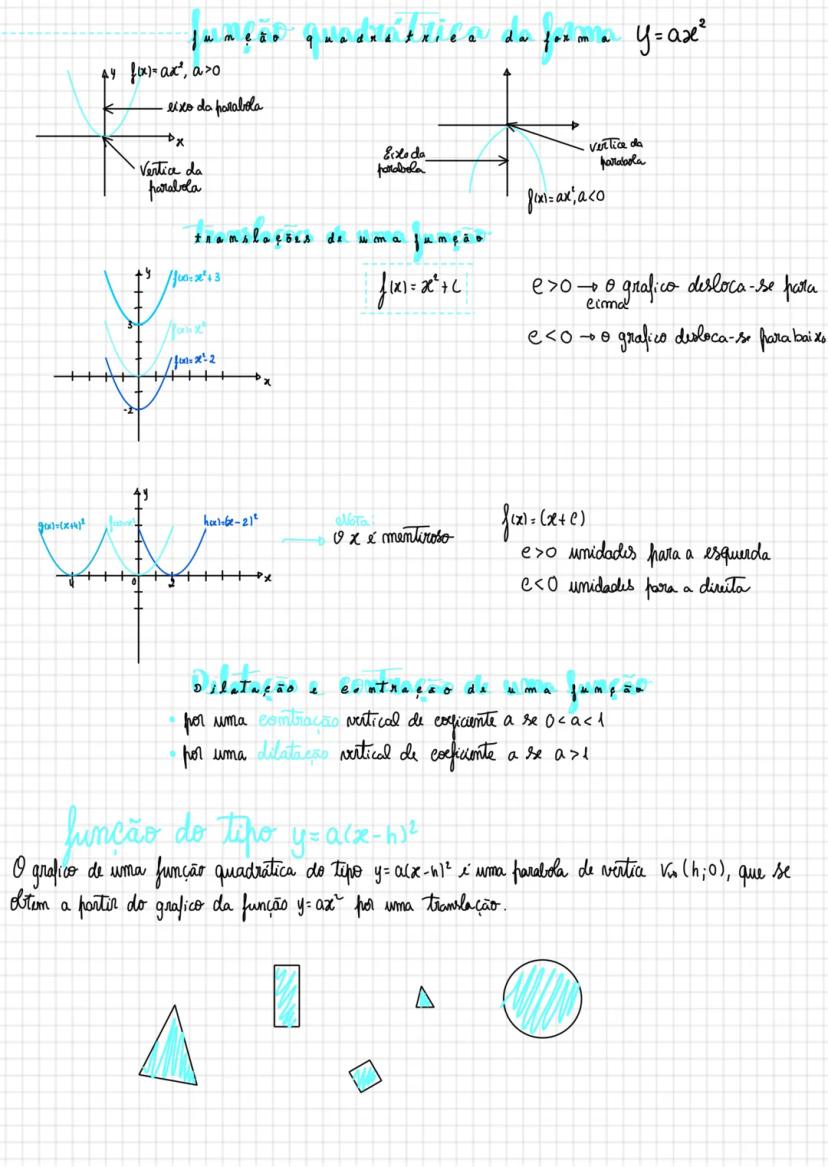 função quadrática da forma y=ax²
y f(x)=ax², a>0
eixo da parabola
x
Vertice da
parabola
Eixo da
parabola
vertice da
parabola
f(x)=ax², a<0
translações de uma função
y
f(x)=x²+3
3
f(x)=x²
f(x)=x²-2
x
-2
f(x)=x²+c
c>0 → o grafico desloca-se para
cima
c<0 → o grafico desloca-se para baixo
y
g(x)=(x+4)²
h(x)=(x-2)²
0
2
x
Nota:
O x é mentiroso
f(x)=(x+c)
c>0 unidades para a esquerda
c<0 unidades para a direita
Dilatação e contração de uma função
• por uma contração vertical de coeficiente a se 0<a<1
• por uma dilatação vertical de coeficiente a se a>1
função do tipo y=a(x-h)²
O grafico de uma função quadrática do tipo y=a(x-h)² é uma parabola de vertice (h;0), que se
obtem a partir do grafico da função y=ax² por uma translação.